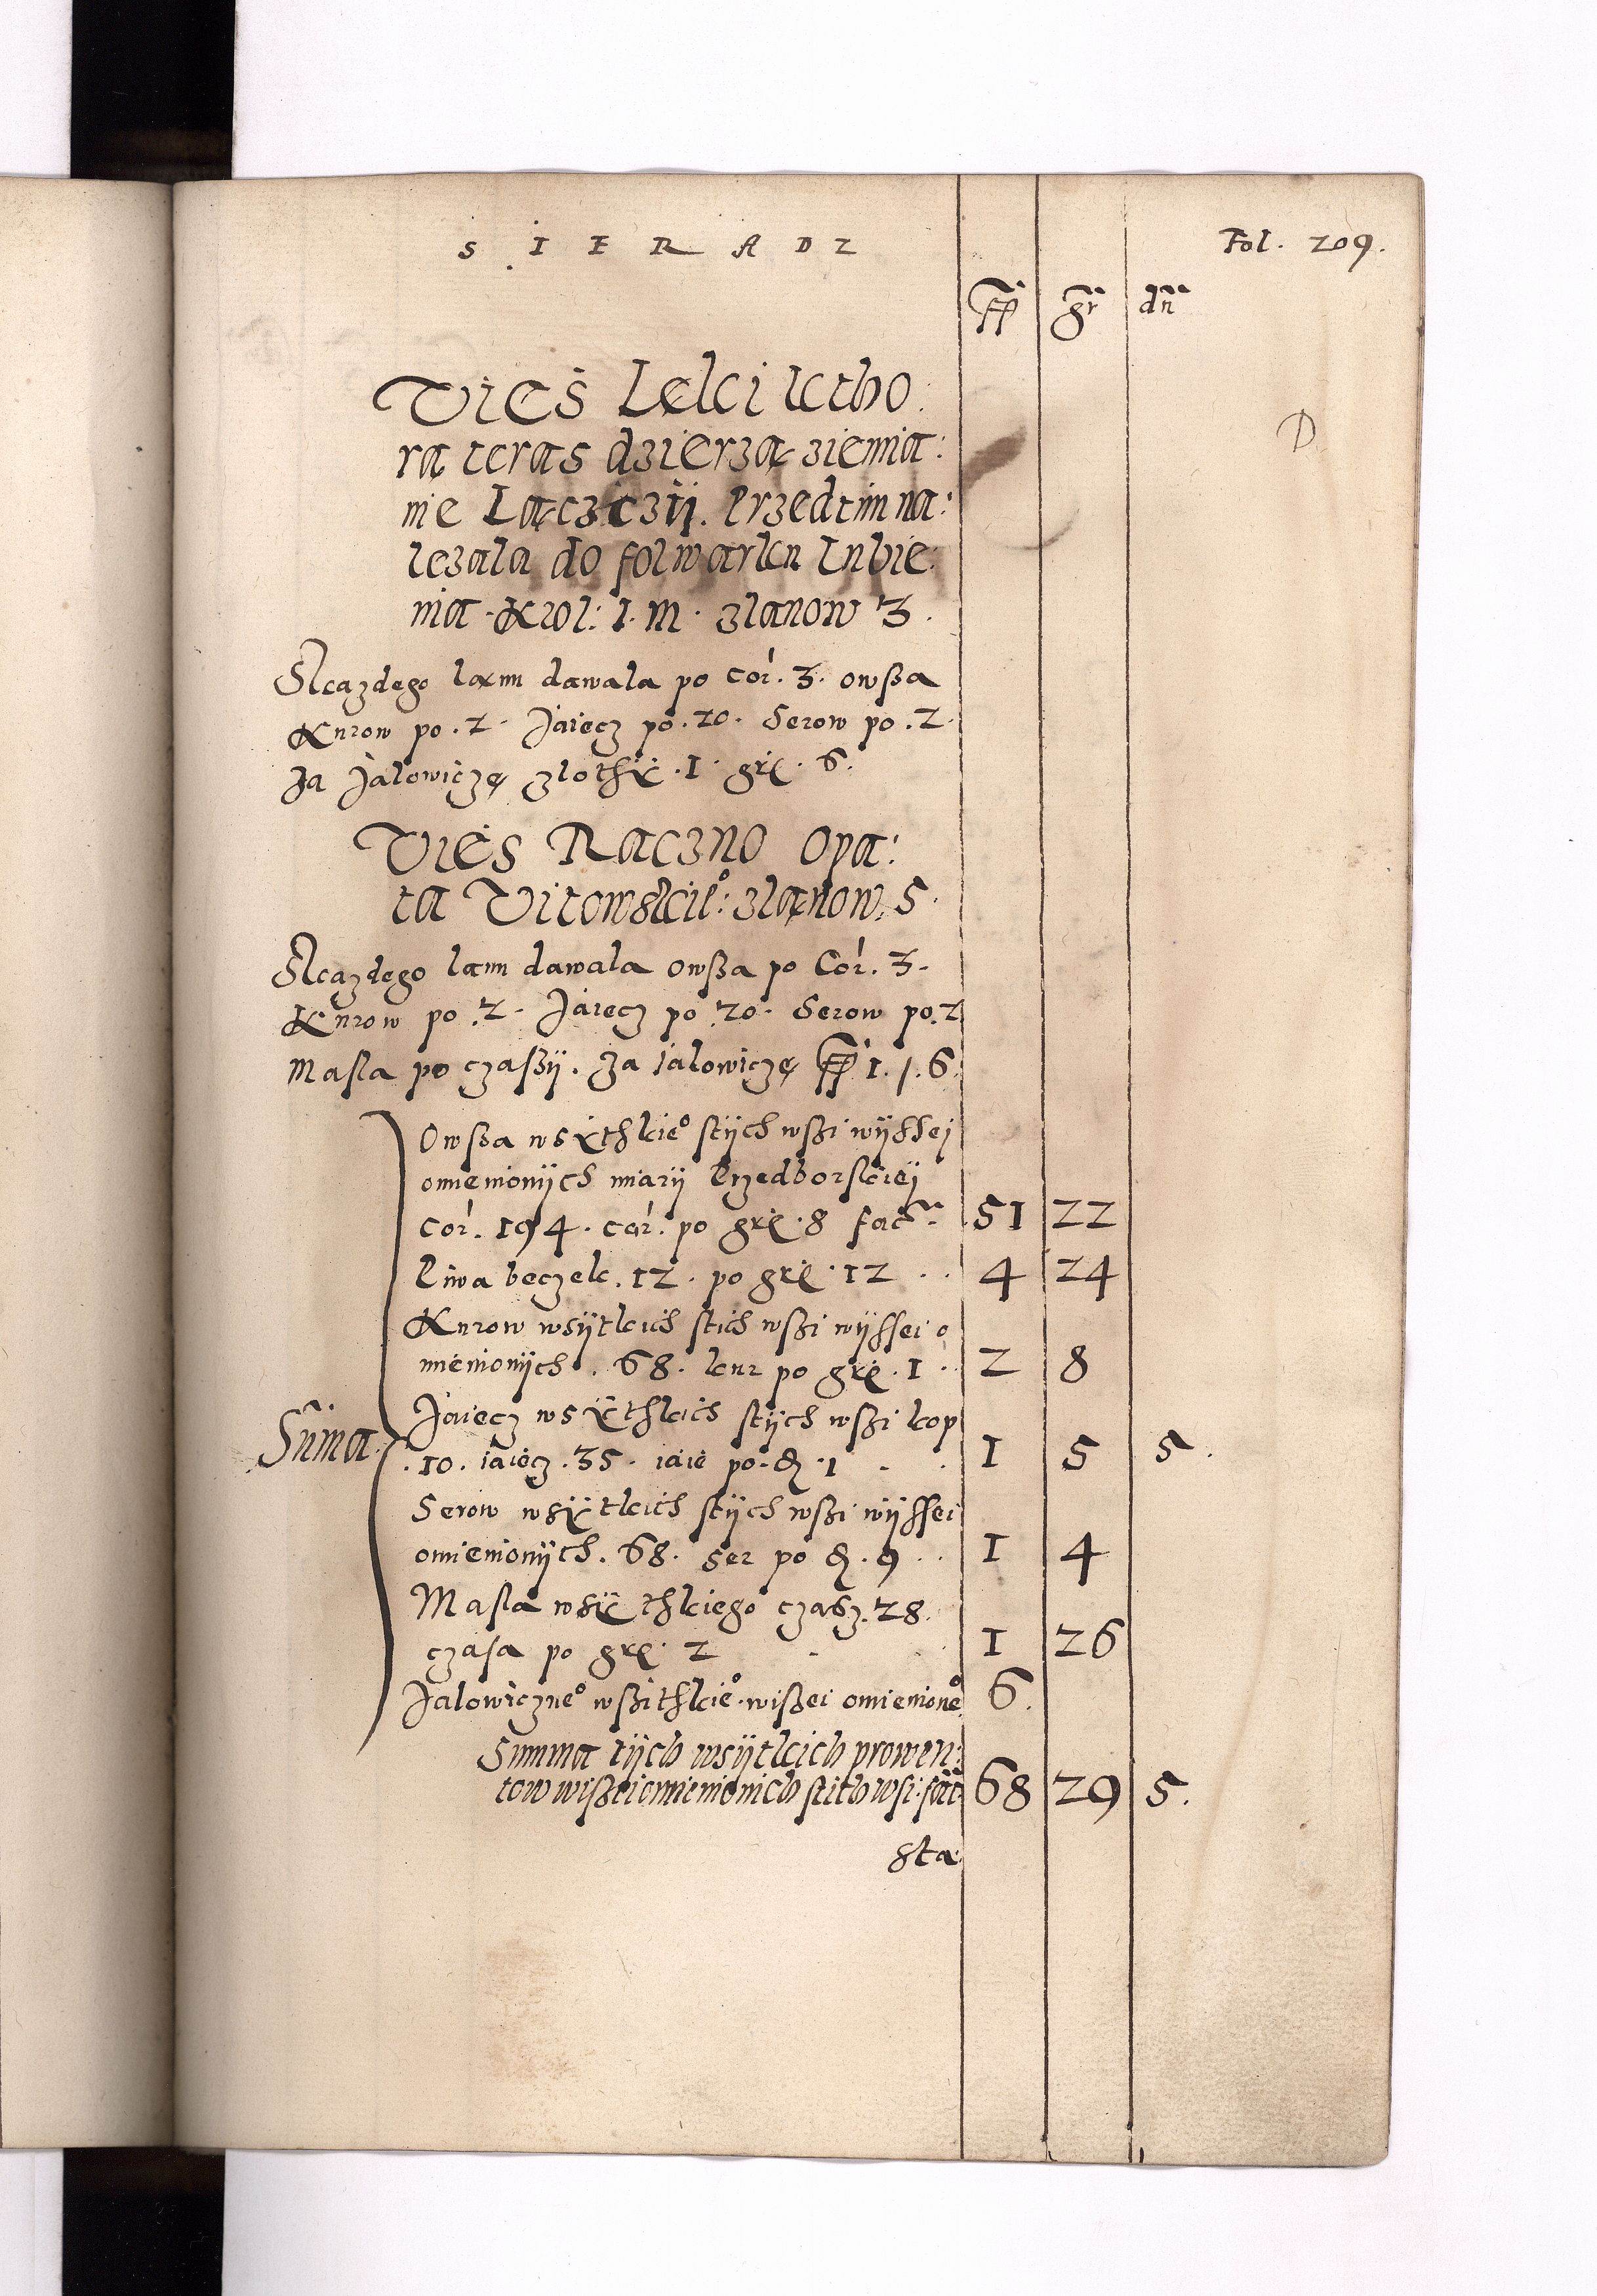 SIERADZ
Fol. 209.
fl gr dn
Vieś Lelci ktho:
ra teras dzierzą ziemia:
nie Łącziczÿ. Przedtim na:
lezala do folwarku Lubie:
nia Krol: J. M. złanow 3.
Skazdego lanu dawala po Cor. 3. owßa
Kurow po. 2. Jaiecz po. 20. Serow po. 2.
Za Jalowiczę zlothÿ. 1. grę. 6.
Vieś Raczno Opa:
ta Vitowskieº: złanow. 5.
Skazdego lanu dawala owßa po Cor. 3.
Kurow po. 2. Jaiecz po 20. Serow po. 2
Masla po czaßÿ. Za ialowiczę fl 1. /. 6.
Owßa wsÿthkieº stÿch wßi wÿssej
omienionÿch miarÿ Przedborskiej
Cor. 194. cor. po grę. 8 facit 51 22
Piwa beczek. 12. po grę. 12 . . 4 24
Kurow wsÿtkich stich wßi wÿssei o
mienionÿch. 68. kur po grę. 1 . . 2 8
Suma
Jaiecz wsÿthkich stÿch wßi kop
.10. iaiecz. 35. iaie po. d. 1 . . 1 5 5.
Serow wsÿtkich stÿch wßi wÿssei
omienionÿch. 68. ser po d. 9 . . 1 4
Masla wsÿthkiego czasz. 28.
czasa po grę. 2 . . 1 26
Jalowiczneº wßithkieº wißei omienioneº 6.
Summa tÿch wsÿtkich prowen:
tow wißei omienionich stich wsi. facit 68 29 5.
sta
D